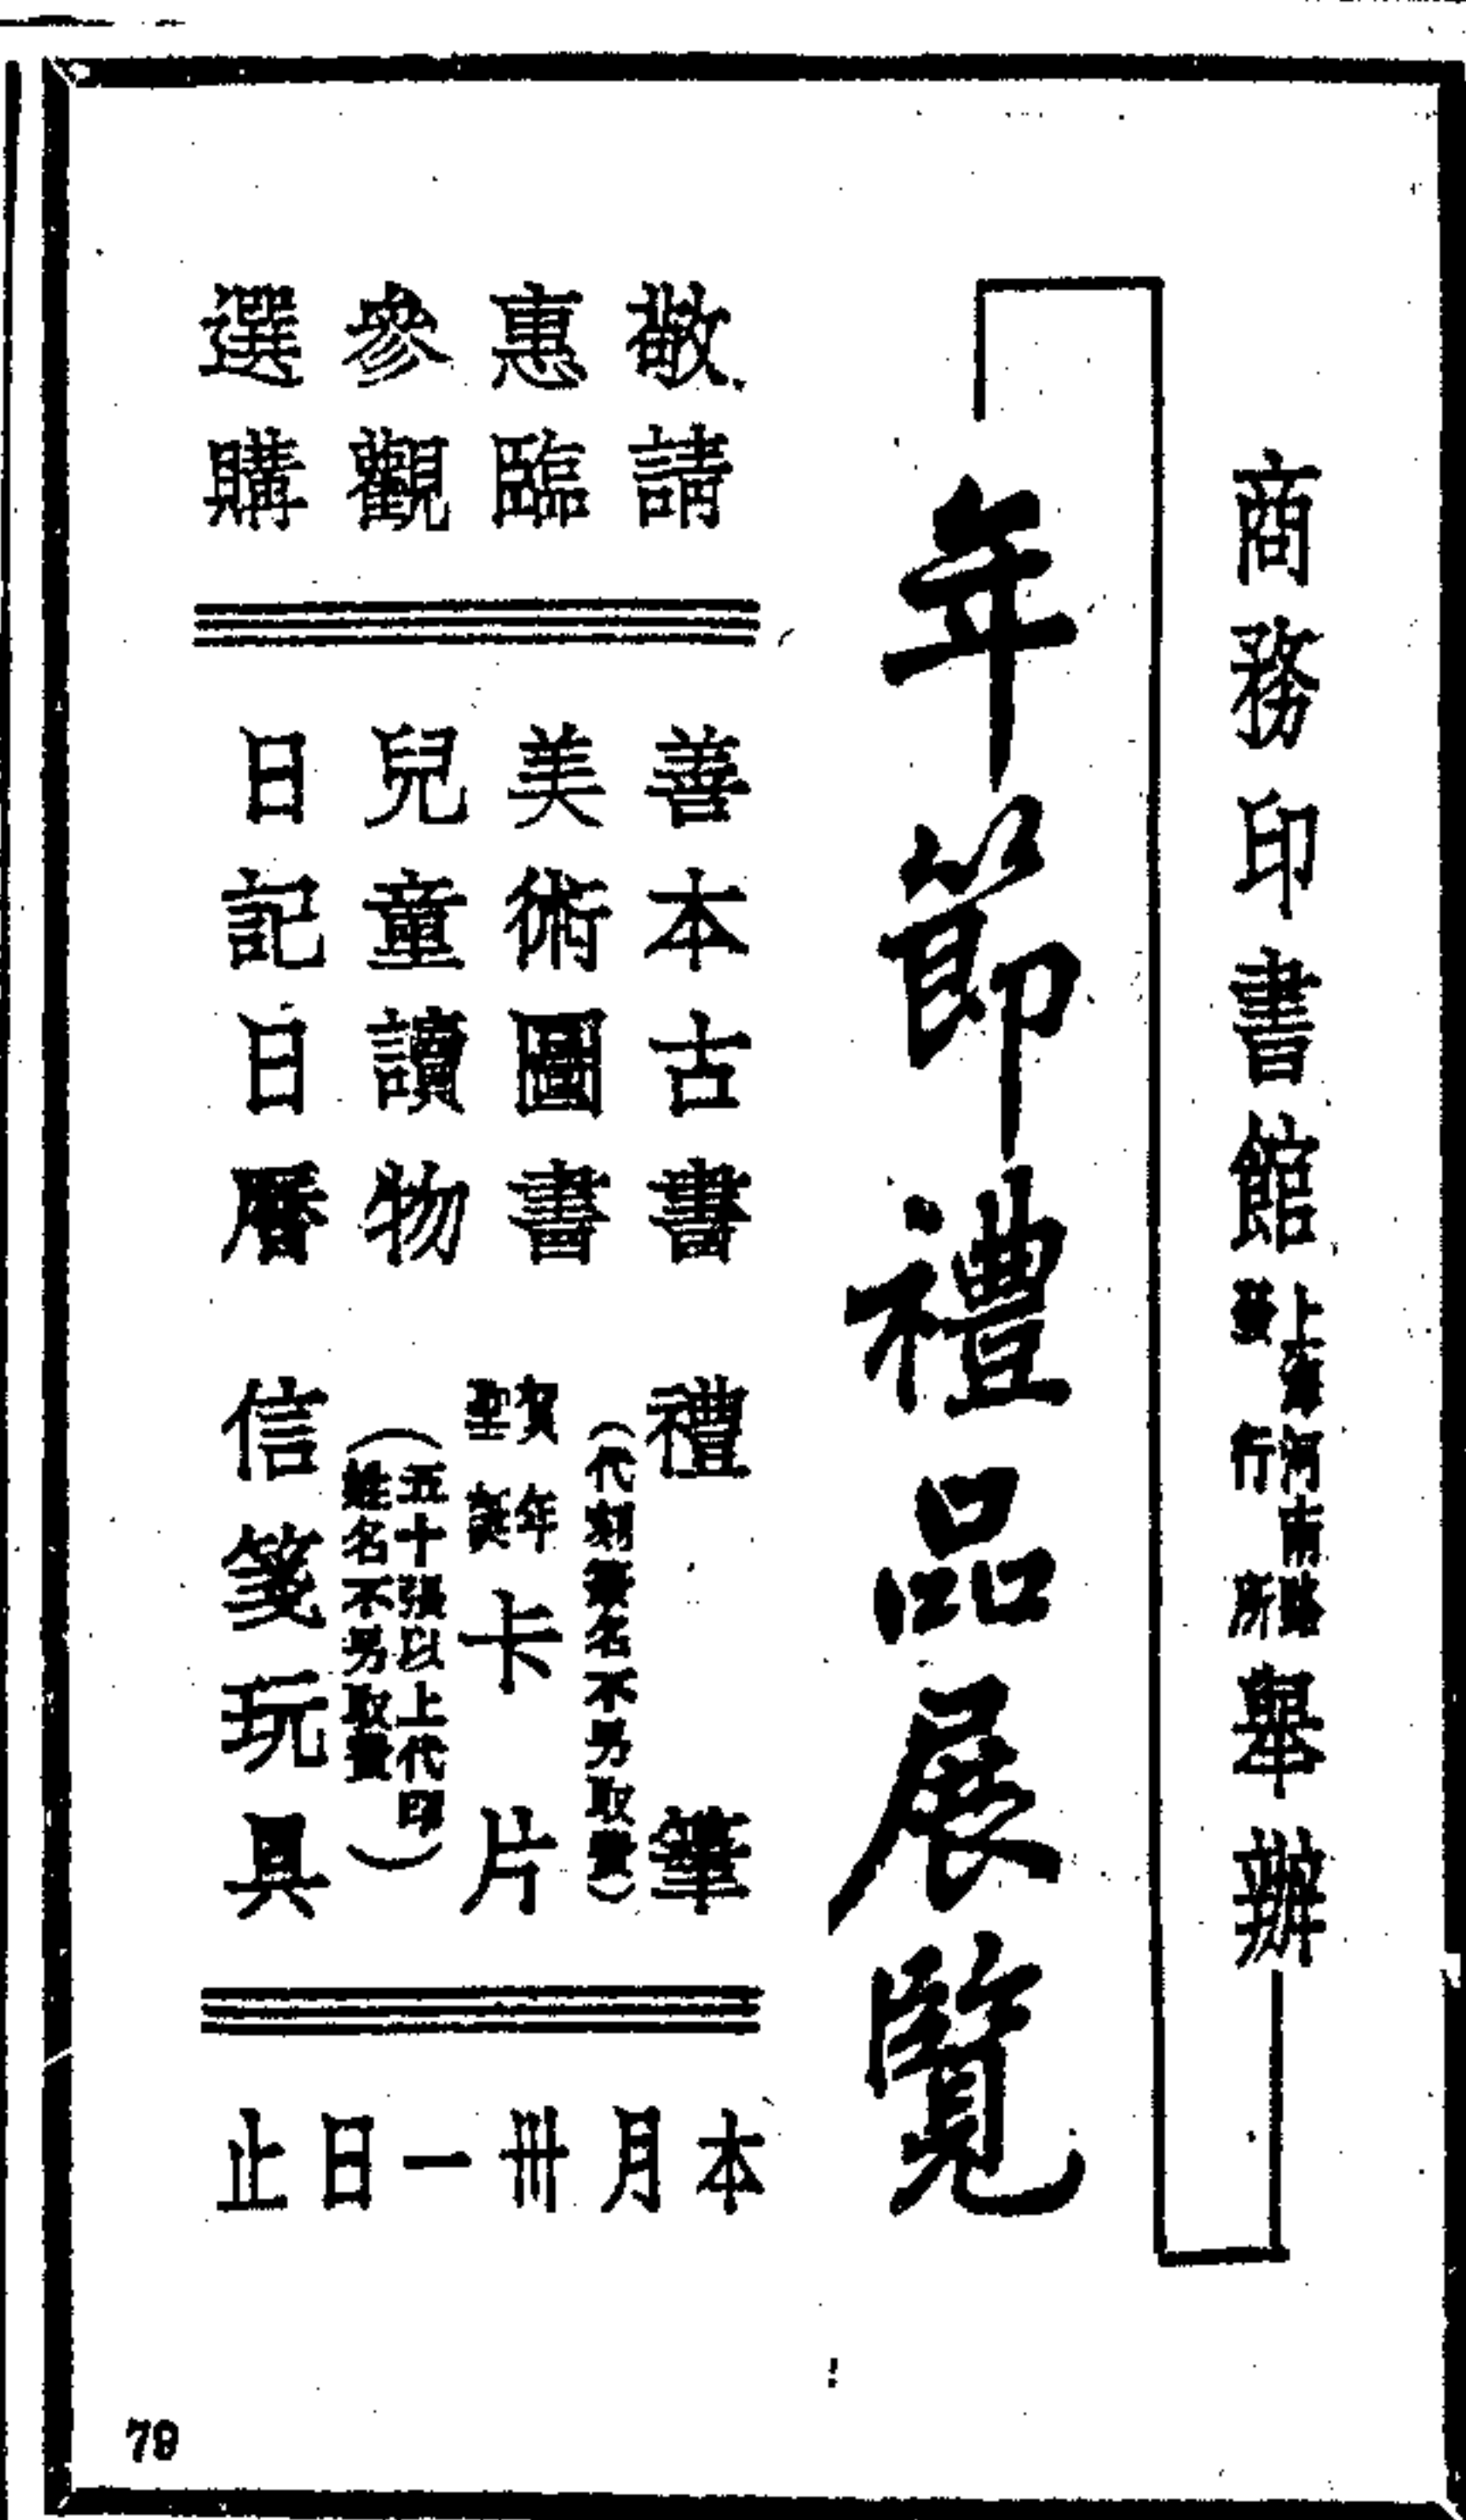 商務印書館上海河南路發行所舉辦
年節禮品展覽
敬請
惠臨
參觀
選購
善本古書
美術圖書
兒童讀物
日記日曆
禮筆
(代刻姓名不另取費)
賀年聖誕卡片
(五十張以上代印姓名不另取費)
信箋玩具
本月卅一日止
78